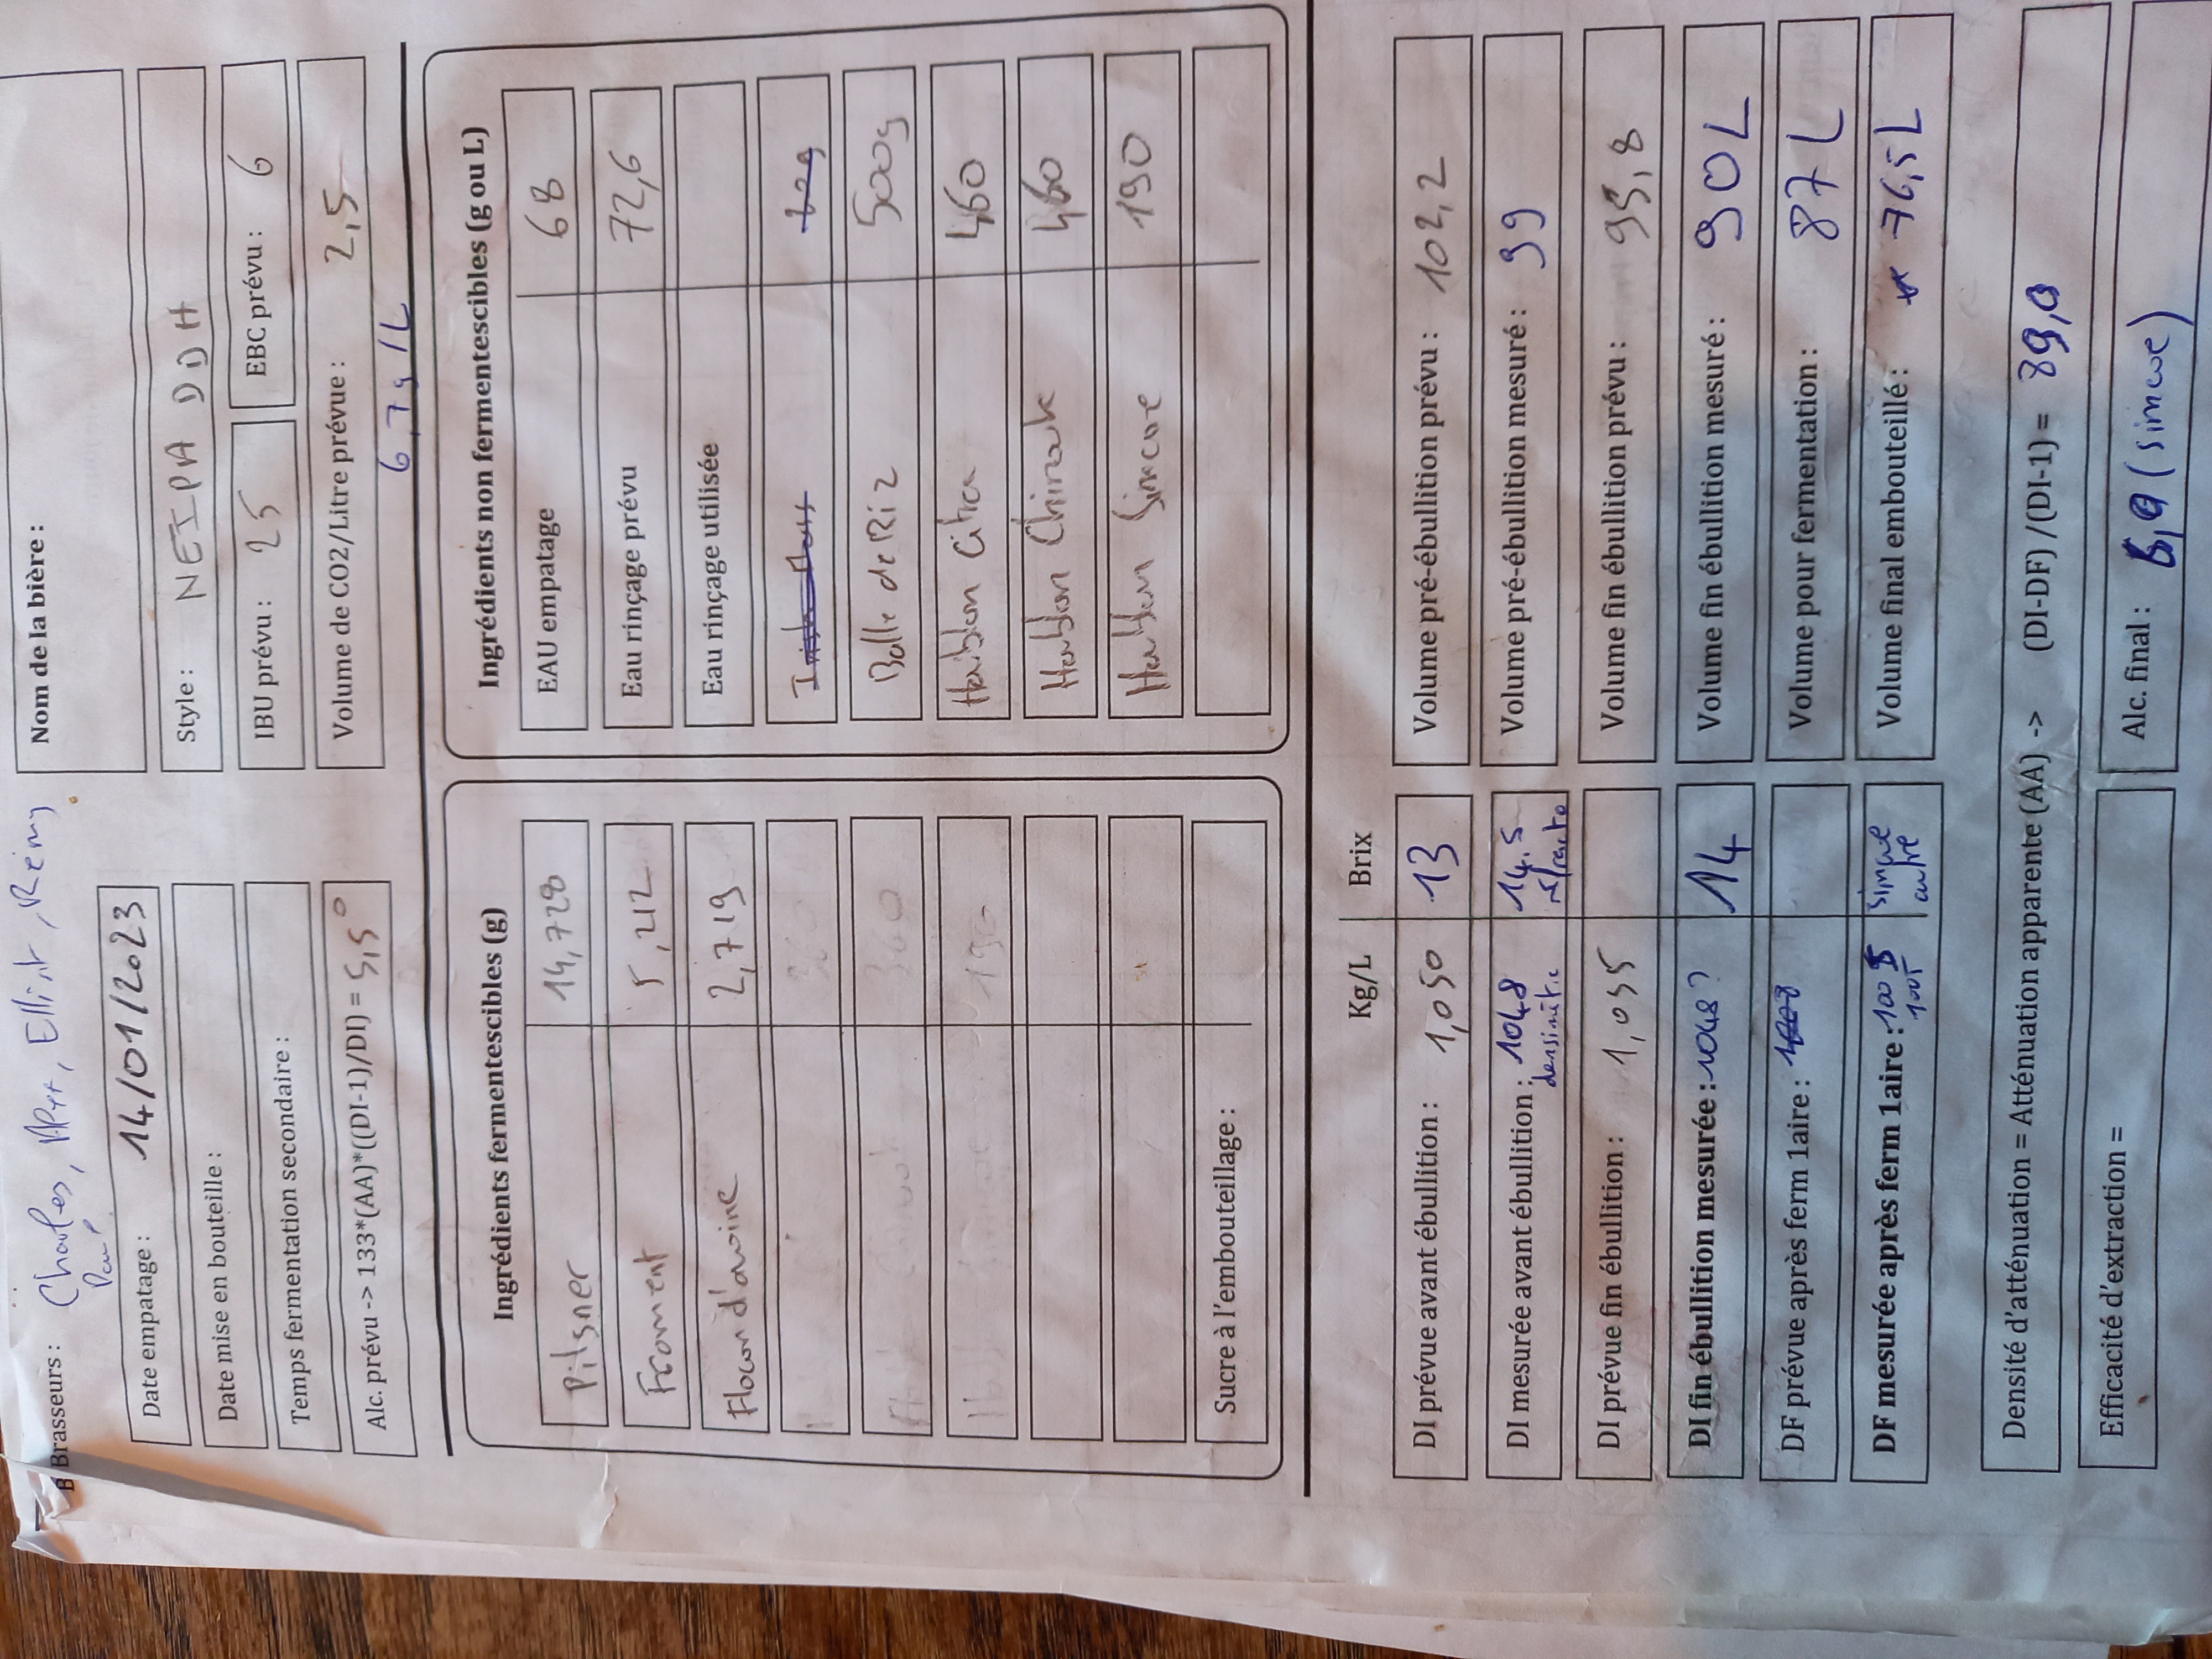 Brasseurs : Charles, , Elliot, Rémy
Paul
Date empatage : 14/01/2023
Date mise en bouteille :
Temps fermentation secondaire :
Alc. prévu -> 133*(AA)*((DI-1)/DI) = 5,5°
Nom de la bière :
Style : NEIPA DDH
IBU prévu : 25
EBC prévu : 6
Volume de CO2/Litre prévue : 2,5
6,7g/L
Ingrédients fermentescibles (g)
Pilsner 14,728
Froment 5,212
Flocon d'avoine 2,719
360
190
Sucre à l'embouteillage :
Ingrédients non fermentescibles (g ou L)
EAU empatage 68
Eau rinçage prévu 72,6
Eau rinçage utilisée
Irish Moss 20g
Balle de Riz 500g
Houblon Citra 460
Houblon Chinook 460
Houblon Simcoe 190
Kg/L Brix
DI prévue avant ébullition : 1,050 13
DI mesurée avant ébullition : 1048 14.5
densimètre réfracto
DI prévue fin ébullition : 1,055
DI fin ébullition mesurée : 1048? 14
DF prévue après ferm 1aire : 1008
DF mesurée après ferm 1aire : 1005 simcoe
1005 autre
Volume pré-ébullition prévu : 102,2
Volume pré-ébullition mesuré : 99
Volume fin ébullition prévu : 95,8
Volume fin ébullition mesuré : 90L
Volume pour fermentation : 87L
Volume final embouteillé : 76,5L
Densité d'atténuation = Atténuation apparente (AA) -> (DI-DF) /(DI-1) = 89,0
Efficacité d'extraction =
Alc. final : (simcoe)